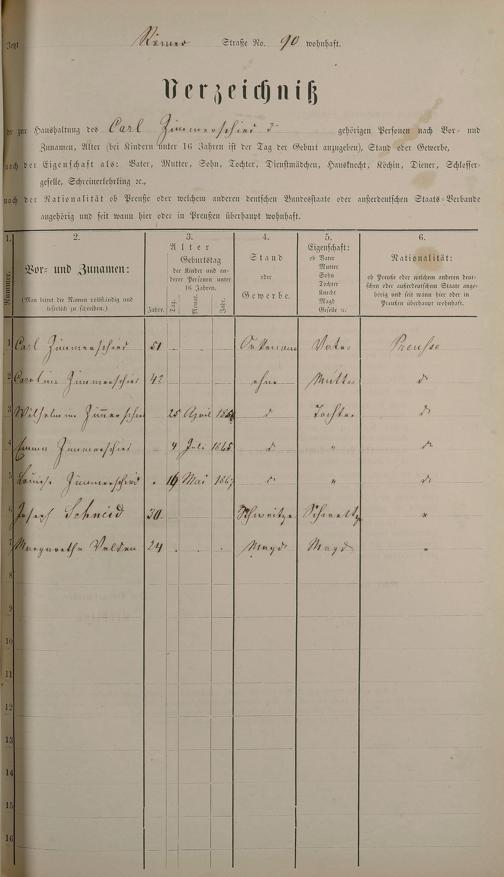 Jetzt Römer Straße No. 90 wohnhaft.
Verzeichniß
der zur Haushaltung des Carl Zimmerschied gehörigen Personen nach Vor- und
Zunamen, Alter (bei Kindern unter 16 Jahren ist der Tag der Geburt anzugeben), Stand oder Gewerbe,
nach der Eigenschaft als: Vater, Mutter, Sohn, Tochter, Dienstmädchen, Hausknecht, Köchin, Diener, Schlosser-
geselle, Schreinerlehrling ꝛc.,
nach der Nationalität ob Preuße oder welchem anderen deutschen Bundesstaate oder außerdeutschen Staats-Verbande
angehörig und seit wann hier oder in Preußen überhaupt wohnhaft.
1. 2. 3. 4. 5. 6.
Nummer.
Vor- und Zunamen:
(Man bittet die Namen vollständig und leserlich zu schreiben.)
Alter
Jahre.
Geburtstag
der Kinder und anderer Personen unter 16 Jahren.
Tag. Monat. Jahr.
Stand
oder
Gewerbe.
Eigenschaft:
ob Vater
Mutter
Sohn
Tochter
Knecht
Magd
Geselle ꝛc.
Nationalität:
ob Preuße oder welchem anderen deut-
schen oder außerdeutschen Staate ange-
hörig und seit wann hier oder in
Preußen überhaupt wohnhaft.
1 Carl Zimmerschied 51 Oekonom Vater Preusse
2 Caroline Zimmerschied 42 ohne Mutter do
3 Wilhelmine Zimmerschied 25 April do Tochter do
4 Emma Zimmerschied 4 Juli 1865 do " do
5 Louise Zimmerschied 16 Mai 1867 do " do
6 Joseph Schmid 30 Schweitzer Schweitzer "
7 Margarethe Velden 24 Magd Magd "
8
9
10
11
12
13
14
15
16